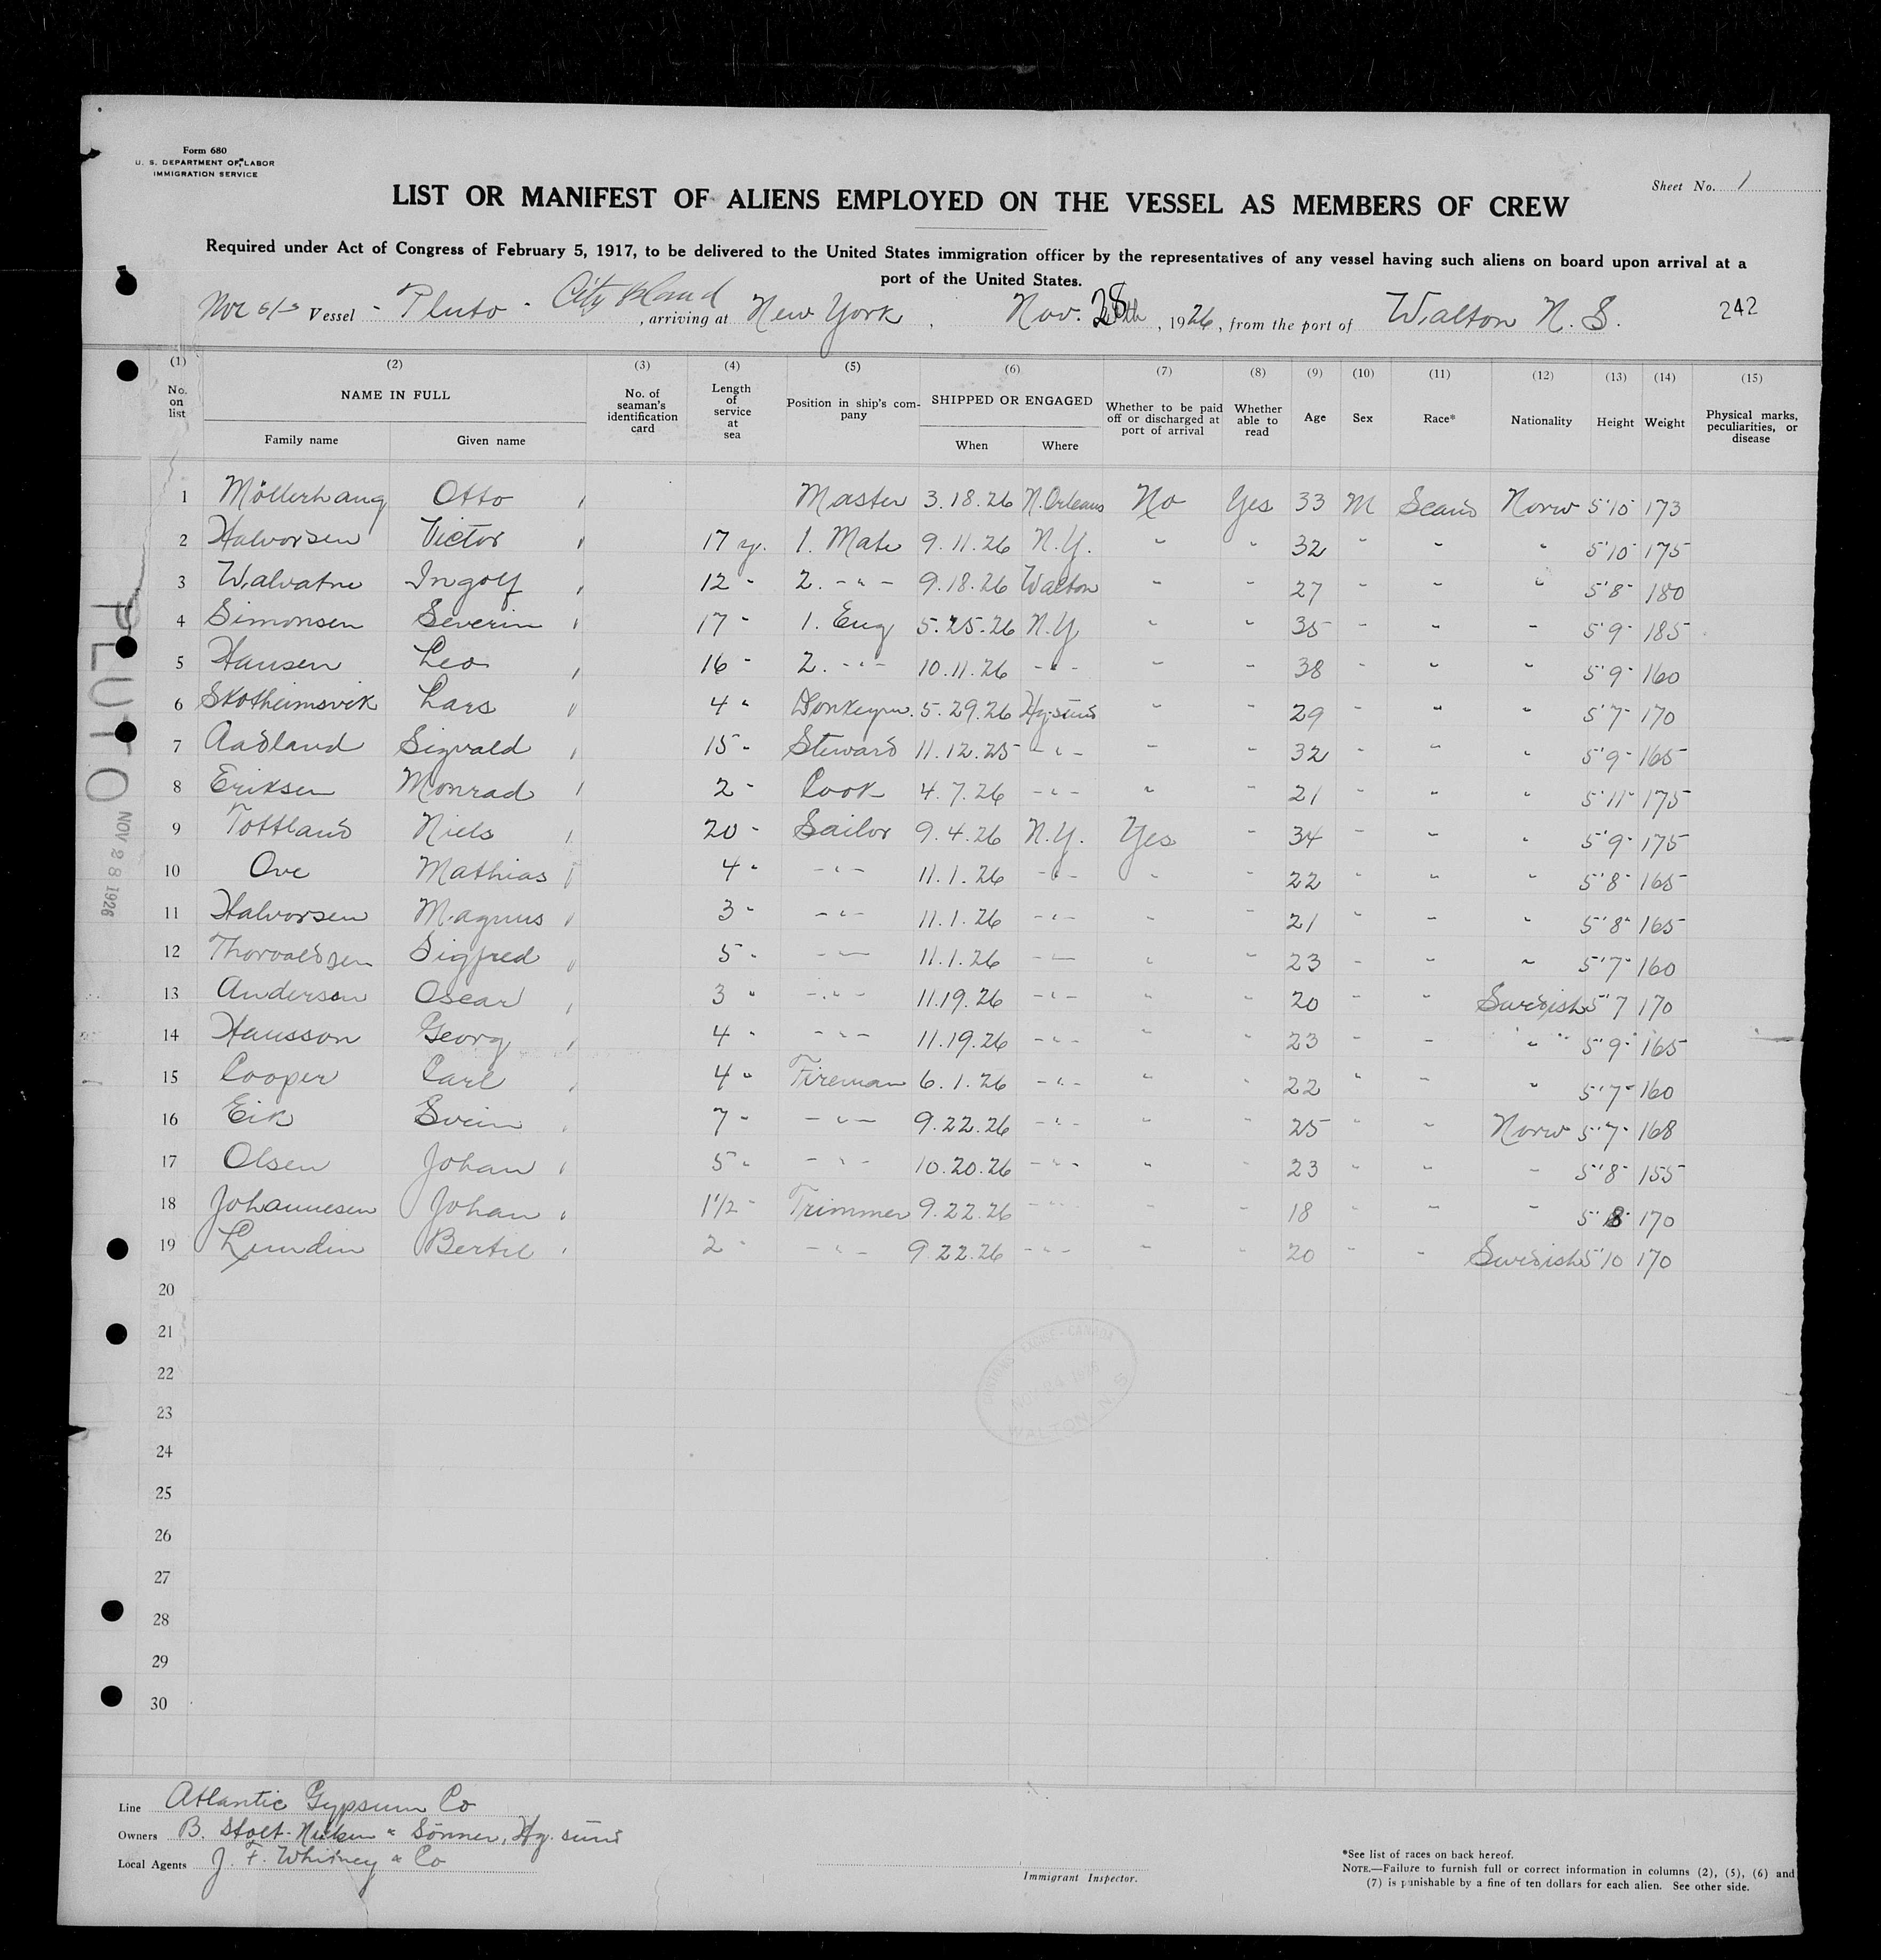 Form 680
U. S. DEPARTMENT OF LABOR
IMMIGRATION SERVICE
Sheet No. 1
LIST OR MANIFEST OF ALIENS EMPLOYED ON THE VESSEL AS MEMBERS OF CREW
Required under Act of Congress of February 5, 1917, to be delivered to the United States immigration officer by the representatives of any vessel having such aliens on board upon arrival at a
port of the United States.
Nor s/s Vessel - Pluto - City Island , arriving at New York , Nov. 28th , 1926, from the port of Walton N. S. 242
(1) (2) (3) (4) (5) (6) (7) (8) (9) (10) (11) (12) (13) (14) (15)
No. on list NAME IN FULL Family name Given name No. of seaman's identification card Length of service at sea Position in ship's company SHIPPED OR ENGAGED When Where Whether to be paid off or discharged at port of arrival Whether able to read Age Sex Race* Nationality Height Weight Physical marks, peculiarities, or disease
1 Möllerhaug Otto Master 3.18.26 N.Orleans No Yes 33 M Scand Norw 5'10" 173
2 Halvorsen Victor 17 yr. 1. Mate 9.11.26 N.Y. " " 32 " " " 5'10" 175
3 Walvatne Ingolf 12 " 2. - " - 9.18.26 Walton " " 27 " " " 5'8" 180
4 Simonsen Severin 17 " 1. Eng 5.25.26 N.Y " " 35 " " " 5'9" 185
5 Hansen Leo 16 " 2. - " - 10.11.26 - " - " " 38 " " " 5'9" 160
6 Skotheimsvik Lars 4 " Donkeym. 5.29.26 Hg.sund " " 29 " " " 5'7" 170
7 Aadland Sigvald 15 " Steward 11.12.25 - " - " " 32 " " " 5'9" 165
8 Eriksen Monrad 2 " Cook 4.7.26 - " - " " 21 " " " 5'11" 175
9 Tottland Niels 20 " Sailor 9.4.26 N.Y. Yes " 34 " " " 5'9" 175
10 Ove Mathias 4 " - " - 11.1.26 - " - " " 22 " " " 5'8" 165
11 Halvorsen Magnus 3 " - " - 11.1.26 - " - " " 21 " " " 5'8" 165
12 Thorvaldsen Sigfred 5 " - " - 11.1.26 - " - " " 23 " " " 5'7" 160
13 Anderson Oscar 3 " - " - 11.19.26 - " - " " 20 " " Swedish 5'7 170
14 Hansson Georg 4 " - " - 11.19.26 - " - " " 23 " " " 5'9" 165
15 Cooper Carl 4 " Fireman 6.1.26 - " - " " 22 " " " 5'7" 160
16 Eik Svein 7 " - " - 9.22.26 - " - " " 25 " " Norw 5'7" 168
17 Olsen Johan 5 " - " - 10.20.26 - " - " " 23 " " " 5'8" 155
18 Johannesen Johan 1 1/2 " Trimmer 9.22.26 - " - " " 18 " " " 5'8" 170
19 Lundin Bertil 2 " - " - 9.22.26 - " - " " 20 " " Swedish 5'10 170
20
21
22
23
24
25
26
27
28
29
30
PLUTO
NOV 28 1926
WALTON, N.S.
Line Atlantic Gypsum Co
Owners B. Stolt-Nielsen & Sönner, Hg.sund
Local Agents J. F. Whitney & Co
Immigrant Inspector.
*See list of races on back hereof.
NOTE.—Failure to furnish full or correct information in columns (2), (5), (6) and
(7) is punishable by a fine of ten dollars for each alien. See other side.